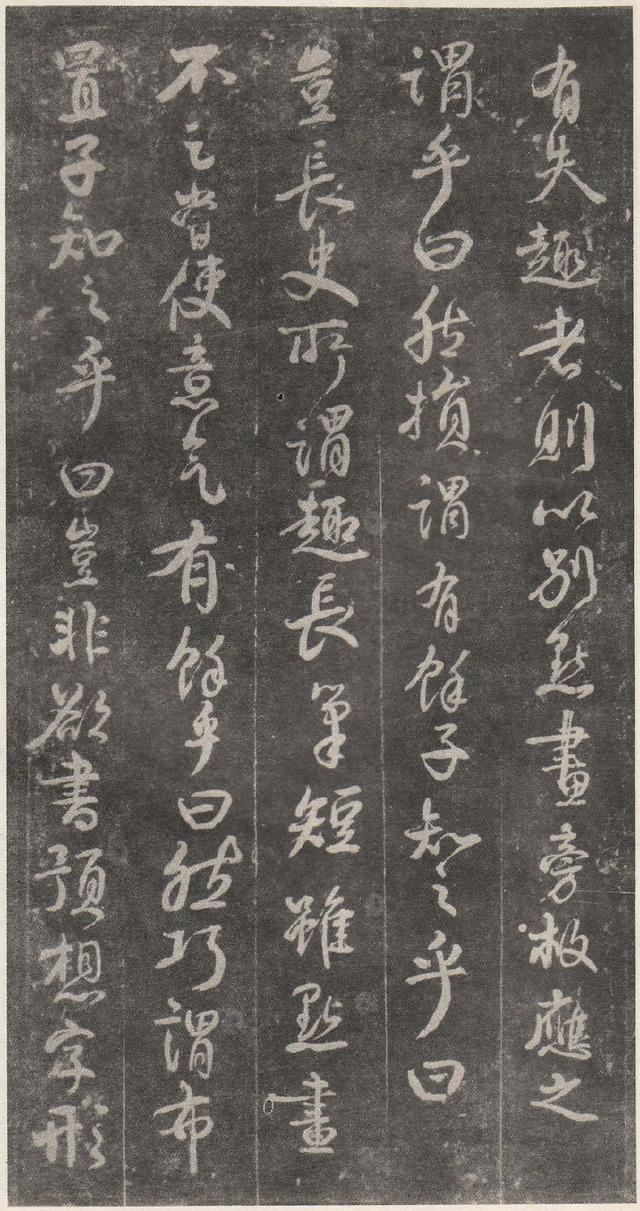 有失趣者則以别點畫旁救應之
謂乎曰然損謂有餘子知之乎曰
豈長史所謂趣長筆短雖點畫
不足嘗使意气有餘乎曰然巧謂布
置子知之乎曰豈非欲書預想字形